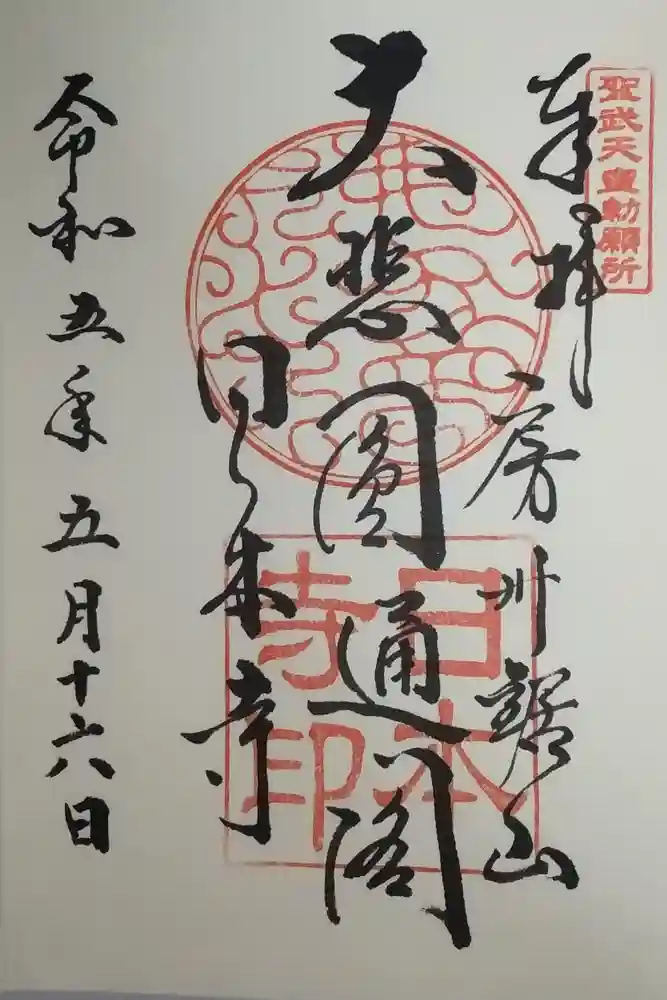 聖武天皇勅願所
奉拝 房州鋸山
大悲圓通閣
日本寺
日本寺印
令和五年五月十六日